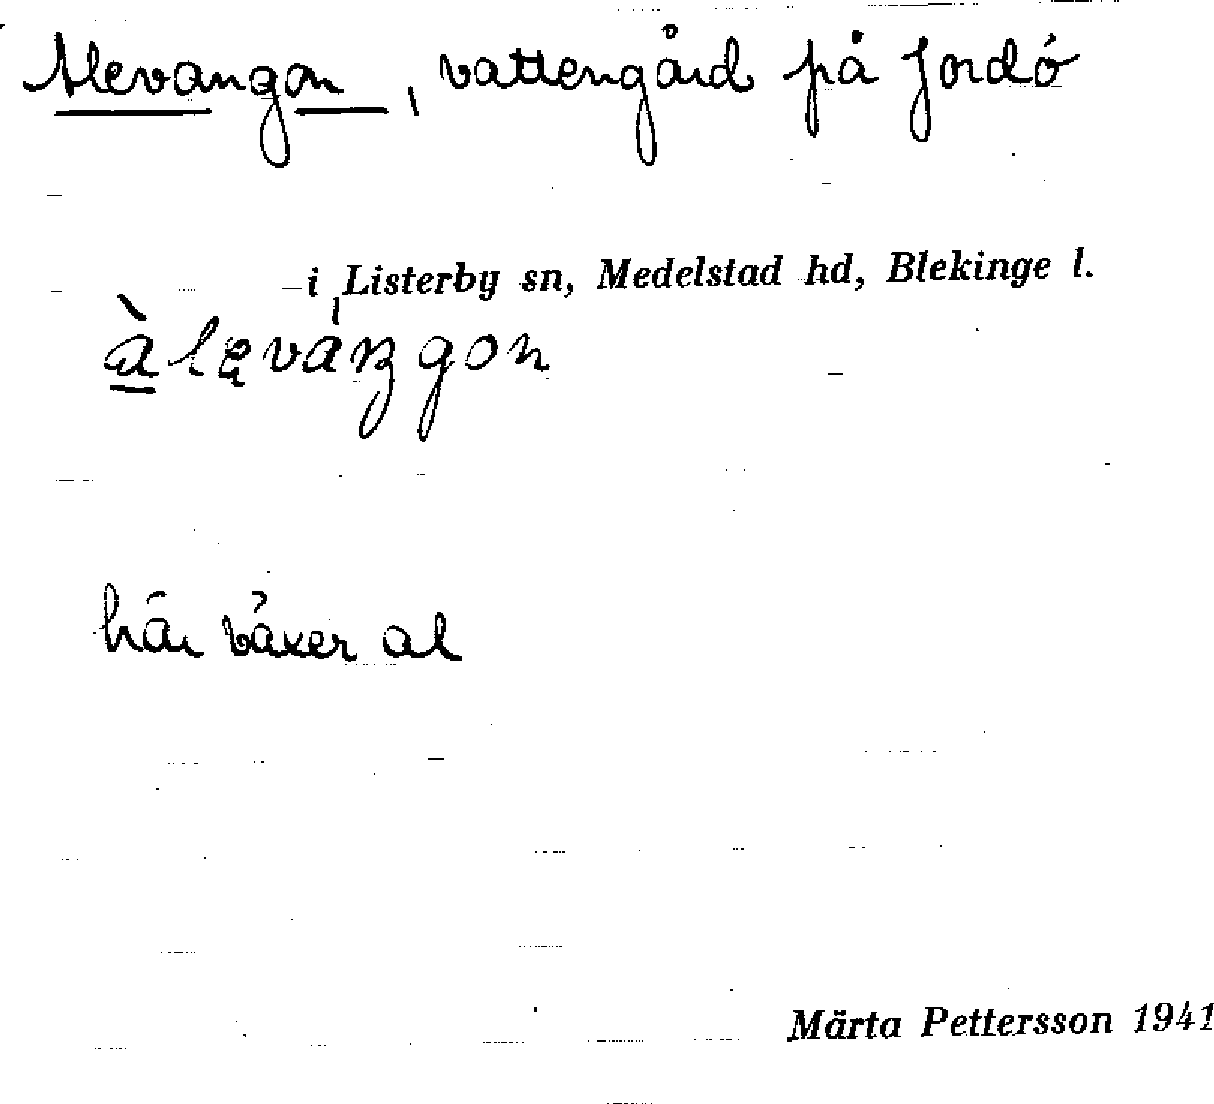 Alevangon, vattengård på Jordö
i Listerby sn, Medelstad hd, Blekinge l.
àlevaŋgon
här växer al
Märta Pettersson 1941